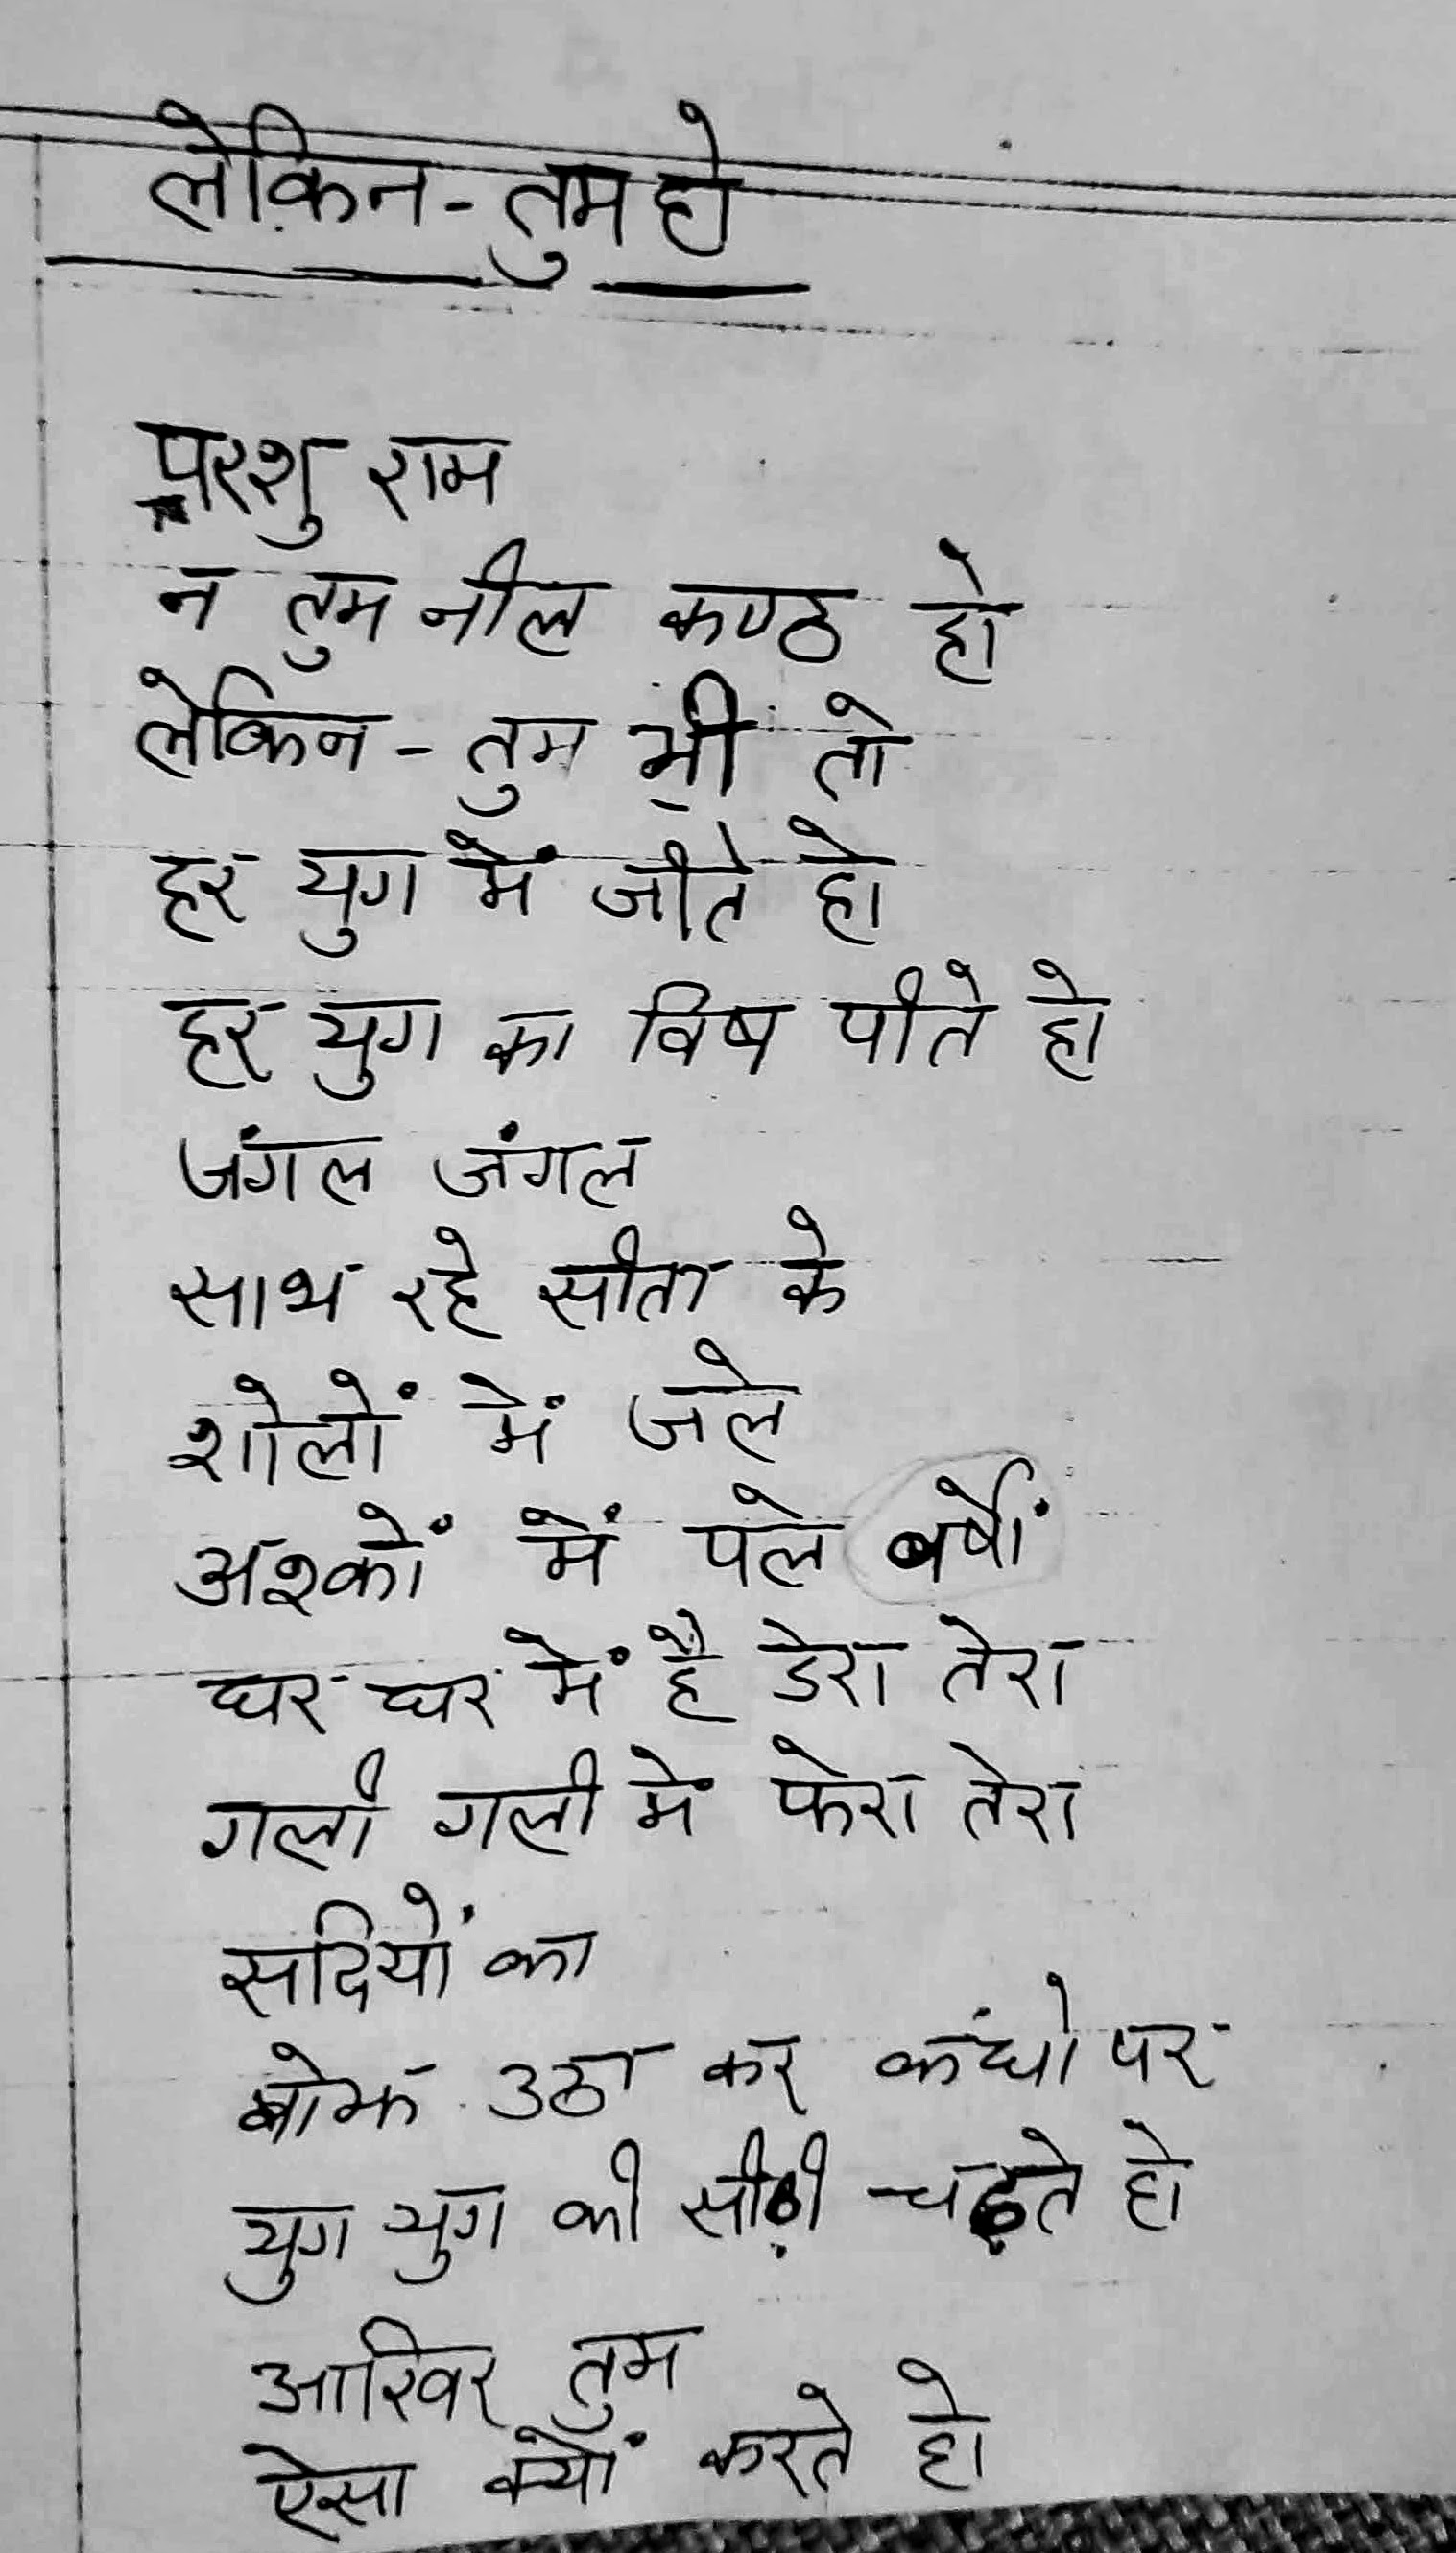 लेक़िन - तुम हो
परशु राम
न तुम नील कण्ठ हो
लेकिन - तुम भी तो
हर युग में जीते हो
हर युग का विष पीते हो
जंगल जंगल
साथ रहे सीता के
शोलों में जले
अश्कों में पले बर्षों
घर घर में है डेरा तेरा
गली गली में फेरा तेरा
सदियों का
बोझ उठा कर कंधो पर
युग युग की सीढ़ी चढ़ते हो
आखिर तुम
ऐसा क्यों करते हो